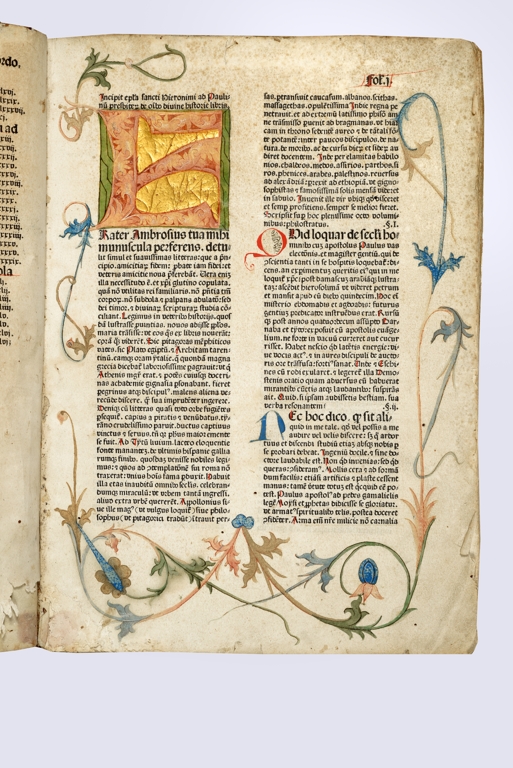 ordo.
ola
Fol. j.
Incipit epła sancti Hieronimi ad Pauli-
nū presbiterū de oībꝰ divine historie libris.
Frater Ambrosius tua mihi
munuscula perferens. detu-
lit simul et suavissimas litteras:
principio amicitiaꝝ fidem: ꝓbate iam fidei:et
veteris amicicie nova preferebant. Vera enim
illa necessitudo ē. et xp̄i glutino copulata.
quā nō utilitas rei familiaris. nō pñtia tm̄
corpoꝝ. nō subdola ⁊ palpans adulatō: sed
dei timor. ⁊ divinaꝝ scripturaꝝ studia cō-
ciliant. Legimus in veteribꝰ historijs. quos-
dā lustrasse ꝓuintias. novos adijsse pplos.
maria trāsisse: ut eos q̄s ex libris noverāt:
corā q̄ȝ viderēt. Sic pitagoras mēphiticos
vates. sic Plato egiptū. ⁊ Architam taren-
tinū. eamqȝ oram ytalie. que quondā magna
grecia dicebat laboriosissime pagravit: ut q
Athenis mgr̄ erat. ⁊ potēs. cuiusqȝ doctri-
nas achademie gignasia ꝑsonabant. fieret
peregrinus atqȝ discipulꝰ. malens aliena ve-
recūde discere. q̄ȝ sua impudenter ingerere.
Deniqȝ cū litteras quasi toto orbe fugiētes
ꝑsequit̄. captus a piratis ⁊ venūdatus. ty-
rāno crudelissimo paruit. ductus captivus
vinctus ⁊ servus. tñ qꝛ phūs maior emente
se fuit. Ad Tytū livium. lacteo eloquentie
fonte manantē. de ultimis hispanie gallia
rumqȝ finibꝰ. quosdā venisse nobiles legi-
mus: ⁊ quos ad ꝯtemplatōnē sui roma nō
traxerat: unius hoīs fama ꝑduxit. Habuit
illa etas inauditū omnibꝰ seclis. celebran-
dumqȝ miraculū: ut urbem tantā ingressi.
aliud extra urbē quererēt. Apollonius si-
ve ille magꝰ (ut vulgus loquit̄) sive philo-
sophus (ut pitagorici tradūt) ītravit per-
sas. ptransivit caucasum. albanos. scithas.
massagethas. opulētissima Indie regna pe-
netravit. et ad extremū latissimo phisō am-
ne trāsmisso puenit ad bragmanas. ut hiar-
cam in throno sedentē aureo ⁊ de tātali fōn-
te potantē: inter paucos discipulos. de na-
tura. de moribꝰ. ac de cursu dieꝝ et sideꝝ au-
diret docentem. Inde per elamitas babilo
nios. chaldeos. medos. assirios. parthos. si-
ros. phenices. arabes. palestinos. reversus
ad alexādriā: prexit ad ethiopiā. ut gigno-
sophistas ⁊ famosissimā solis mensā videret
in sabulo. Invenit ille vir ubiqȝ qđ disceret
et semp proficiens. semper se melior fieret.
Scripsit sup hoc plenissime octo volumi-
nibus: philostratus. §.I.
Quid loquar de secli ho-
minibꝰ cum apostolus Paulus vas
electōnis. et magister gentiū. qui de
ꝯscientia tanti in se hospitis loquebat̄: di-
cens. an experimentum queritis eiꝰ. qui in me
loquit̄ xp̄s: post damascū arabiāqȝ lustra-
tā: ascēdit hierosolimā ut videret petrum
et mansit apud eū diebꝰ quindecim. Hoc eī
misterio ebdomadis et ogdoadis: futurus
gentiuȝ predicator instruēdus erat. Rursūqȝ
post annos quatuordecim assūpto Bar-
naba et tito: exposuit cū apostolis euāge-
lium. ne forte in vacuū curreret aut cucur-
risset. Habet nescio qđ latētis energie: vi-
ve vocis actꝰ. ⁊ in aures discipuli de aucto-
ris ore trāsfusa: fortiꝰ sonat. Unde ⁊ Eschi-
nes cū rodi exularet. ⁊ legeret̄ illa Demo-
stenis oratio quam adversus eū habuerat
mirantibꝰ cūctis atqȝ laudantibꝰ: suspirās
ait. Quid. si ipsam audissetis bestiam. sua
verba resonantem: §.ij.
Nec hoc dico. q̄ sit ali-
quid in me tale. qđ vel possis a me
audire vel velis discere: sȝ q̄ ardor
tuus et discendi studiū etiā absqȝ nobis p
se probari debeat. Ingeniū docile. ⁊ sine do-
ctore laudabile est. Non qđ invenias: sed qđ
queras: ꝯsideramꝰ. Mollis cera ⁊ ad formā
dum facilis: etiāsi artificis ⁊ plaste cessent
manus: tamē virtute totuȝ est qc̄quid eē po-
test. Paulus apostolꝰ ad pedes gamalielis
legē Moysi et ꝓphetas didicisse se gloriatur.
ut armatꝰ spiritualibꝰ telis. postea doceret
ꝯfidēter. Arma em̄ nr̄e milicie nō carnalia